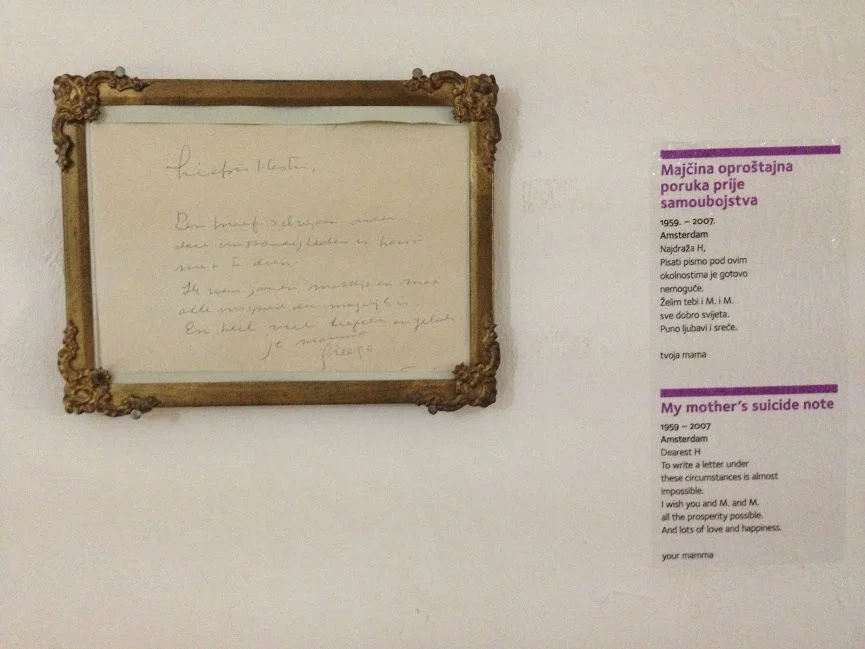 Liefste
Een brief schrijven onder
deze omstandigheden is haast
niet te doen.
Ik wens jou en en
alle voorspoed die mogelijk is.
En heel veel liefde en geluk
je mamma
Majčina oproštajna
poruka prije
samoubojstva
1959. – 2007.
Amsterdam
Najdraža H,
Pisati pismo pod ovim
okolnostima je gotovo
nemoguće.
Želim tebi i M. i M.
sve dobro svijeta.
Puno ljubavi i sreće.
tvoja mama
My mother's suicide note
1959 – 2007
Amsterdam
Dearest H
To write a letter under
these circumstances is almost
impossible.
I wish you and M. and M.
all the prosperity possible.
And lots of love and happiness.
your mamma